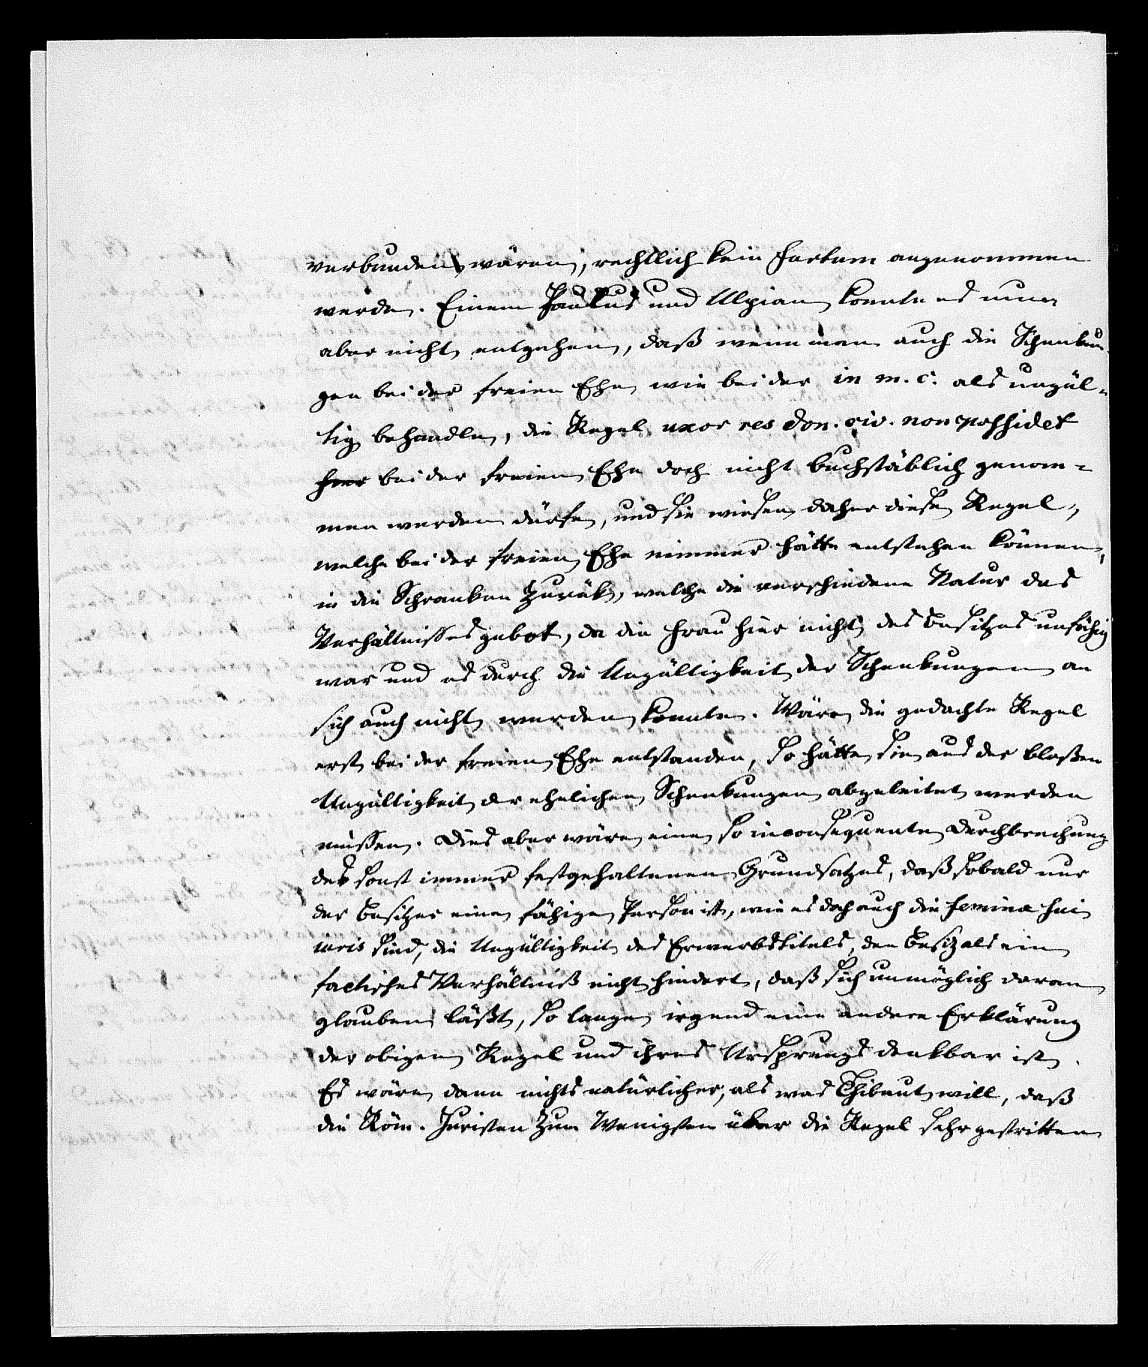 verbunden wären, rechtlich kein furtum angenommen
werden. Einem Paulus und Ulpian konnte es nun
aber nicht entgehen, daß wenn man auch die Schenkun-
gen bei der freien Ehe wie bei der in m. c. als ungül-
tig behandle, die Regel uxor res don. civ. non possidet
hier bei der freien Ehe doch nicht buchstäblich genom-
men werden dürfe, und sie wiesen daher diese Regel,
welche bei der freien Ehe nimmer hätte entstehen können,
in die Schranken zurük, welche die verschiedene Natur des
Verhältnisses gebot, da die Frau hier nicht des Besitzes unfähig
war und es durch die Ungültigkeit der Schenkungen an
sich auch nicht werden konnte. Wäre die gedachte Regel
erst bei der freien Ehe entstanden, so hätte sie aus der bloßen
Ungültigkeit der ehelichen Schenkungen abgeleitet werden
müssen. Dies aber wäre eine so inconsequente Durchbrechung
des sonst immer festgehaltenen Grundsatzes, daß sobald nur
der Besitzer eine fähige Person ist, wie es doch auch die femina sui
iuris sind, die Ungültigkeit des Erwerbstitels, den Besiz als ein
factisches Verhältniß nicht hindert, daß sich unmöglich daran
glauben läßt, so lange irgend eine andere Erklärung
der obigen Regel und ihres Ursprungs denkbar ist.
Es wäre dann nichts natürlicher, als was Thibaut will, daß
die Röm. Juristen zum Wenigsten über die Regel sehr gestritten